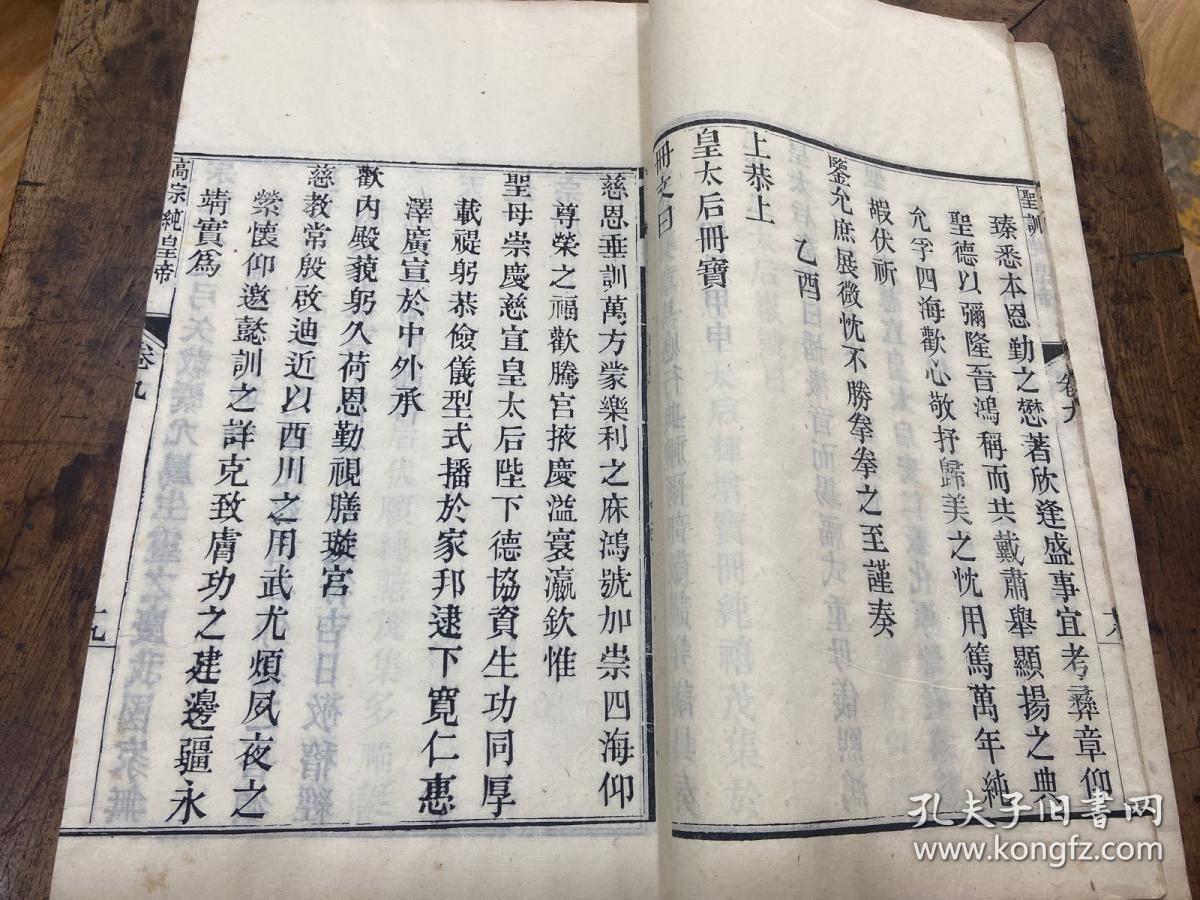 聖訓 卷九 十八
臻悉本恩勤之懋著欣逢盛事宜考彞章仰
聖德以彌隆晉鴻稱而共戴肅舉顯揚之典
允孚四海歡心敬抒歸美之忱用篤萬年純
嘏伏祈
鑒允庶展微忱不勝拳拳之至謹奏
乙酉
上恭上
皇太后冊寶
冊文曰
慈恩垂訓萬方蒙樂利之庥鴻號加崇四海仰
尊榮之福歡騰宮掖慶溢寰瀛欽惟
聖母崇慶慈宣皇太后陛下德協資生功同厚
載禔躬恭儉儀型式播於家邦逮下寬仁惠
澤廣宣於中外承
歡內殿藐躬久荷恩勤視膳璇宮
慈教常殷啟迪近以西川之用武尤煩夙夜之
縈懷仰邀懿訓之詳克致膚功之建邊疆永
靖實爲
高宗純皇帝 卷九 十九
孔夫子旧书网
www.kongfz.com